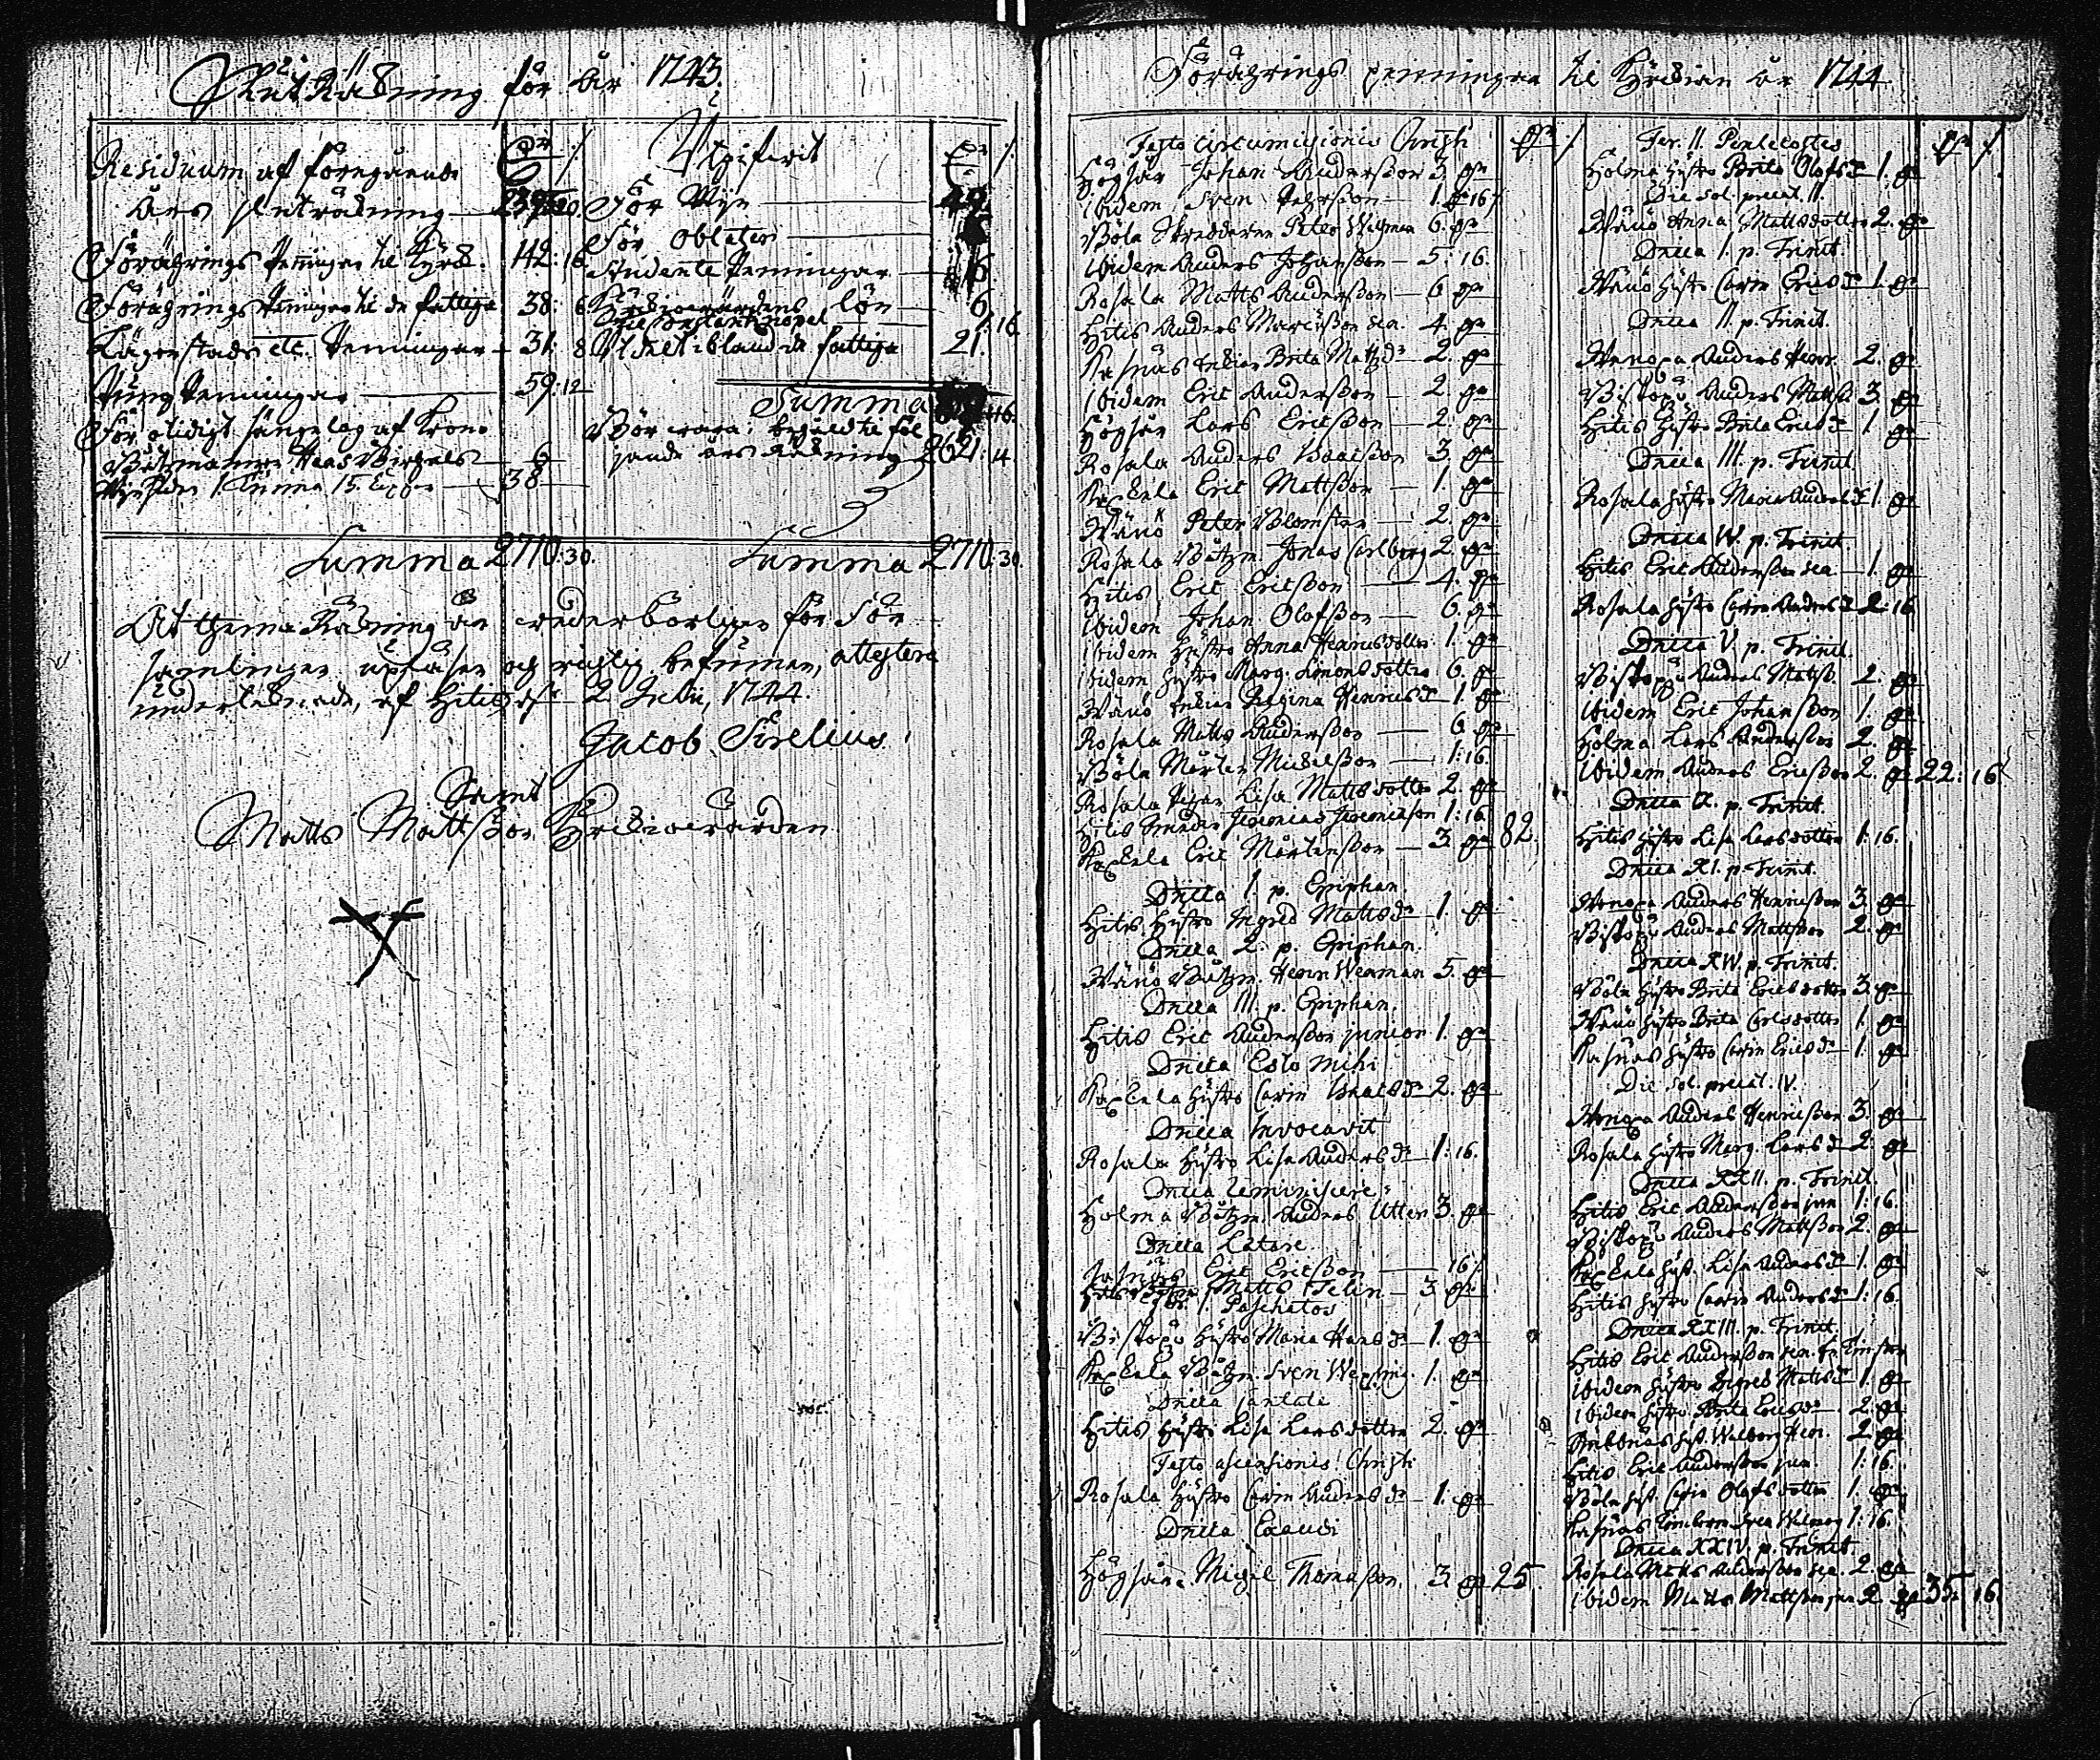 Slut Räkning för år 1743.
Residuum af föregående
års sluträkning
Förährings Penningar til Kyrk. 142: 16
Förährings Penningar til de fattiga 38: 6
Lägerstads etc. Penningar 31: 8
Pung Penningar 59: 12
För otidigt sängelag af Krono
Båtzmannen 6
1 Tunna 15 38
Summa 2710: 30.
Utgifterit
För Wijn
För Oblater
Studente Penningar 6
Kyrkiowärdens lön 6
til Constantinopel 1: 16
Utdelt ibland de fattiga 21.
Summa
Bör wara behåldit til föl
jande års Räkning 2621: 14
Summa 2710: 30.
At thenna Räkning är wederbörligen för För
samlingen upläsen och richtig befunnen, attestera
underteknade, af Hitis d. 2 Julii, 1744.
Jacob Sirelius
Matts Mattsson Kyrkiowärden
Förährings penningar til Kyrkian år 1744
Festo Circumcisionis Christi
Högsår Johan Andersson 3.
Ibidem Sven Petersson 1. 16
Böle Skreddaren Peter 6.
Ibidem Anders Johansson 5: 16.
Rosala Matts Andersson 6
Hitis Anders Marcusson sen. 4.
Kasnäs Enkian Brita Matzdr 2.
Ibidem Eric Andersson 2.
Högsår Lars Ericsson 2.
Rosala Anders Isaacsson 3.
Eric Mattsson 1.
Wänö Peter Blomster 2.
Rosala Båtzm. Jonas Carlberg 2.
Hitis Eric Ericsson 4.
Ibidem Johan Olofsson 6.
Ibidem Hustro Anna Henricsdotter 1.
Ibidem Hustro Marg. Simonsdotter 6.
Wänö Enkian Regina Henricsdr 1.
Rosala Matts Andersson 6
Böle Mårten Mickelsson 1: 16.
Rosala Pigan Lisa Mattsdotter 2.
Hitis Smeden Jeremias Jeremiasson 1: 16
Eric Mårtensson 3. 82.
Dnica 1. p. Epiphan.
Hitis Hustro Ingred Mattsdr 1.
Dnica 2. p. Epiphan.
Wänö Båtzm. Henr. Werman 5.
Dnica III. p. Epiphan.
Hitis Eric Andersson junior 1.
Dnica Esto Mihi
Hustro Carin Isaacsdr 2.
Dnica Invocavit
Rosala Hustro Lisa Andersdr 1: 16.
Dnica Reminiscere
Holma Båtzm. Anders Utter 3.
Dnica Lætare
Eric Ericsson 16
Matts Felin 3
1. Paschatos
Biskopsö Hustro Maria Hansdr 1.
Båtzm. Sven 1.
Dnica Cantate
Hitis Hustro Lisa Larsdotter 2.
Festo ascensionis Christi
Rosala Hustro Carin Andersdr 1.
Dnica Exaudi
Högsåra Michel Thomasson 3. 25.
Fer. II. Pentecostes
Holma Hustro Brita Olofsdr 1.
Die sol. precat. II.
Wänö Anna Mattsdotter 2.
Dnica I. p. Trinit.
Wänö Hustro Carin Ericsdr 1.
Dnica II. p. Trinit.
Wänoxa Anders Henr. 2.
Biskopsö Anders Mattss. 3.
Hitis Hustro Brita Ericsdr 1
Dnica III. p. Trinit.
Rosala Hustro Maria Andersdr 1.
Dnica IV. p. Trinit
Hitis Eric Andersson sen. 1.
Rosala Hustro Carin Andersdr 2: 16
Dnica V. p. Trinit.
Biskopsö Anders Mattss. 2.
Ibidem Eric Johansson 1.
Holma Lars Andersson 2.
Ibidem Anders Ericsson 2. 22: 16
p. Trinit.
Hitis Hustro Lisa Larsdotter 1: 16.
Dnica XI. p. Trinit.
Wänoxa Anders Henricsson 3.
Biskopsö Anders Mattsson 2.
Dnica XIV. p. Trinit.
Böle Hustro Brita Ericsdotter 3.
Wänö Hustro Brita Carlsdotter 1.
Kasnäs Hustro Carin Ericsdr 1.
Die sol. precat. IV.
Wänoxa Anders Henricsson 3.
Rosala Hustro Marg. Larsdr 2.
Dnica XXII. p. Trinit.
Hitis Eric Andersson jun 1: 16.
Biskopsö Anders Mattsson 2.
Hust. Lisa Andersdr 1.
Hitis Hustro Carin Andersdr 1: 16.
Dnica XXIII. p. Trinit.
Hitis Eric Andersson sen.
Ibidem Hustro Ingred Mattsdr 1.
Ibidem Hustro Brita Ericsdr 2.
Hust. Walborg Hen. 2
Hitis Eric Andersson jun. 1: 16.
Böle Hust. Carin Olofsdotter 1.
Kasnäs 1: 16.
Dnica XXIV. p. Trinit
Rosala Matts Andersson sen. 2.
Ibidem Matts Mattsson jun 2. 35: 16.